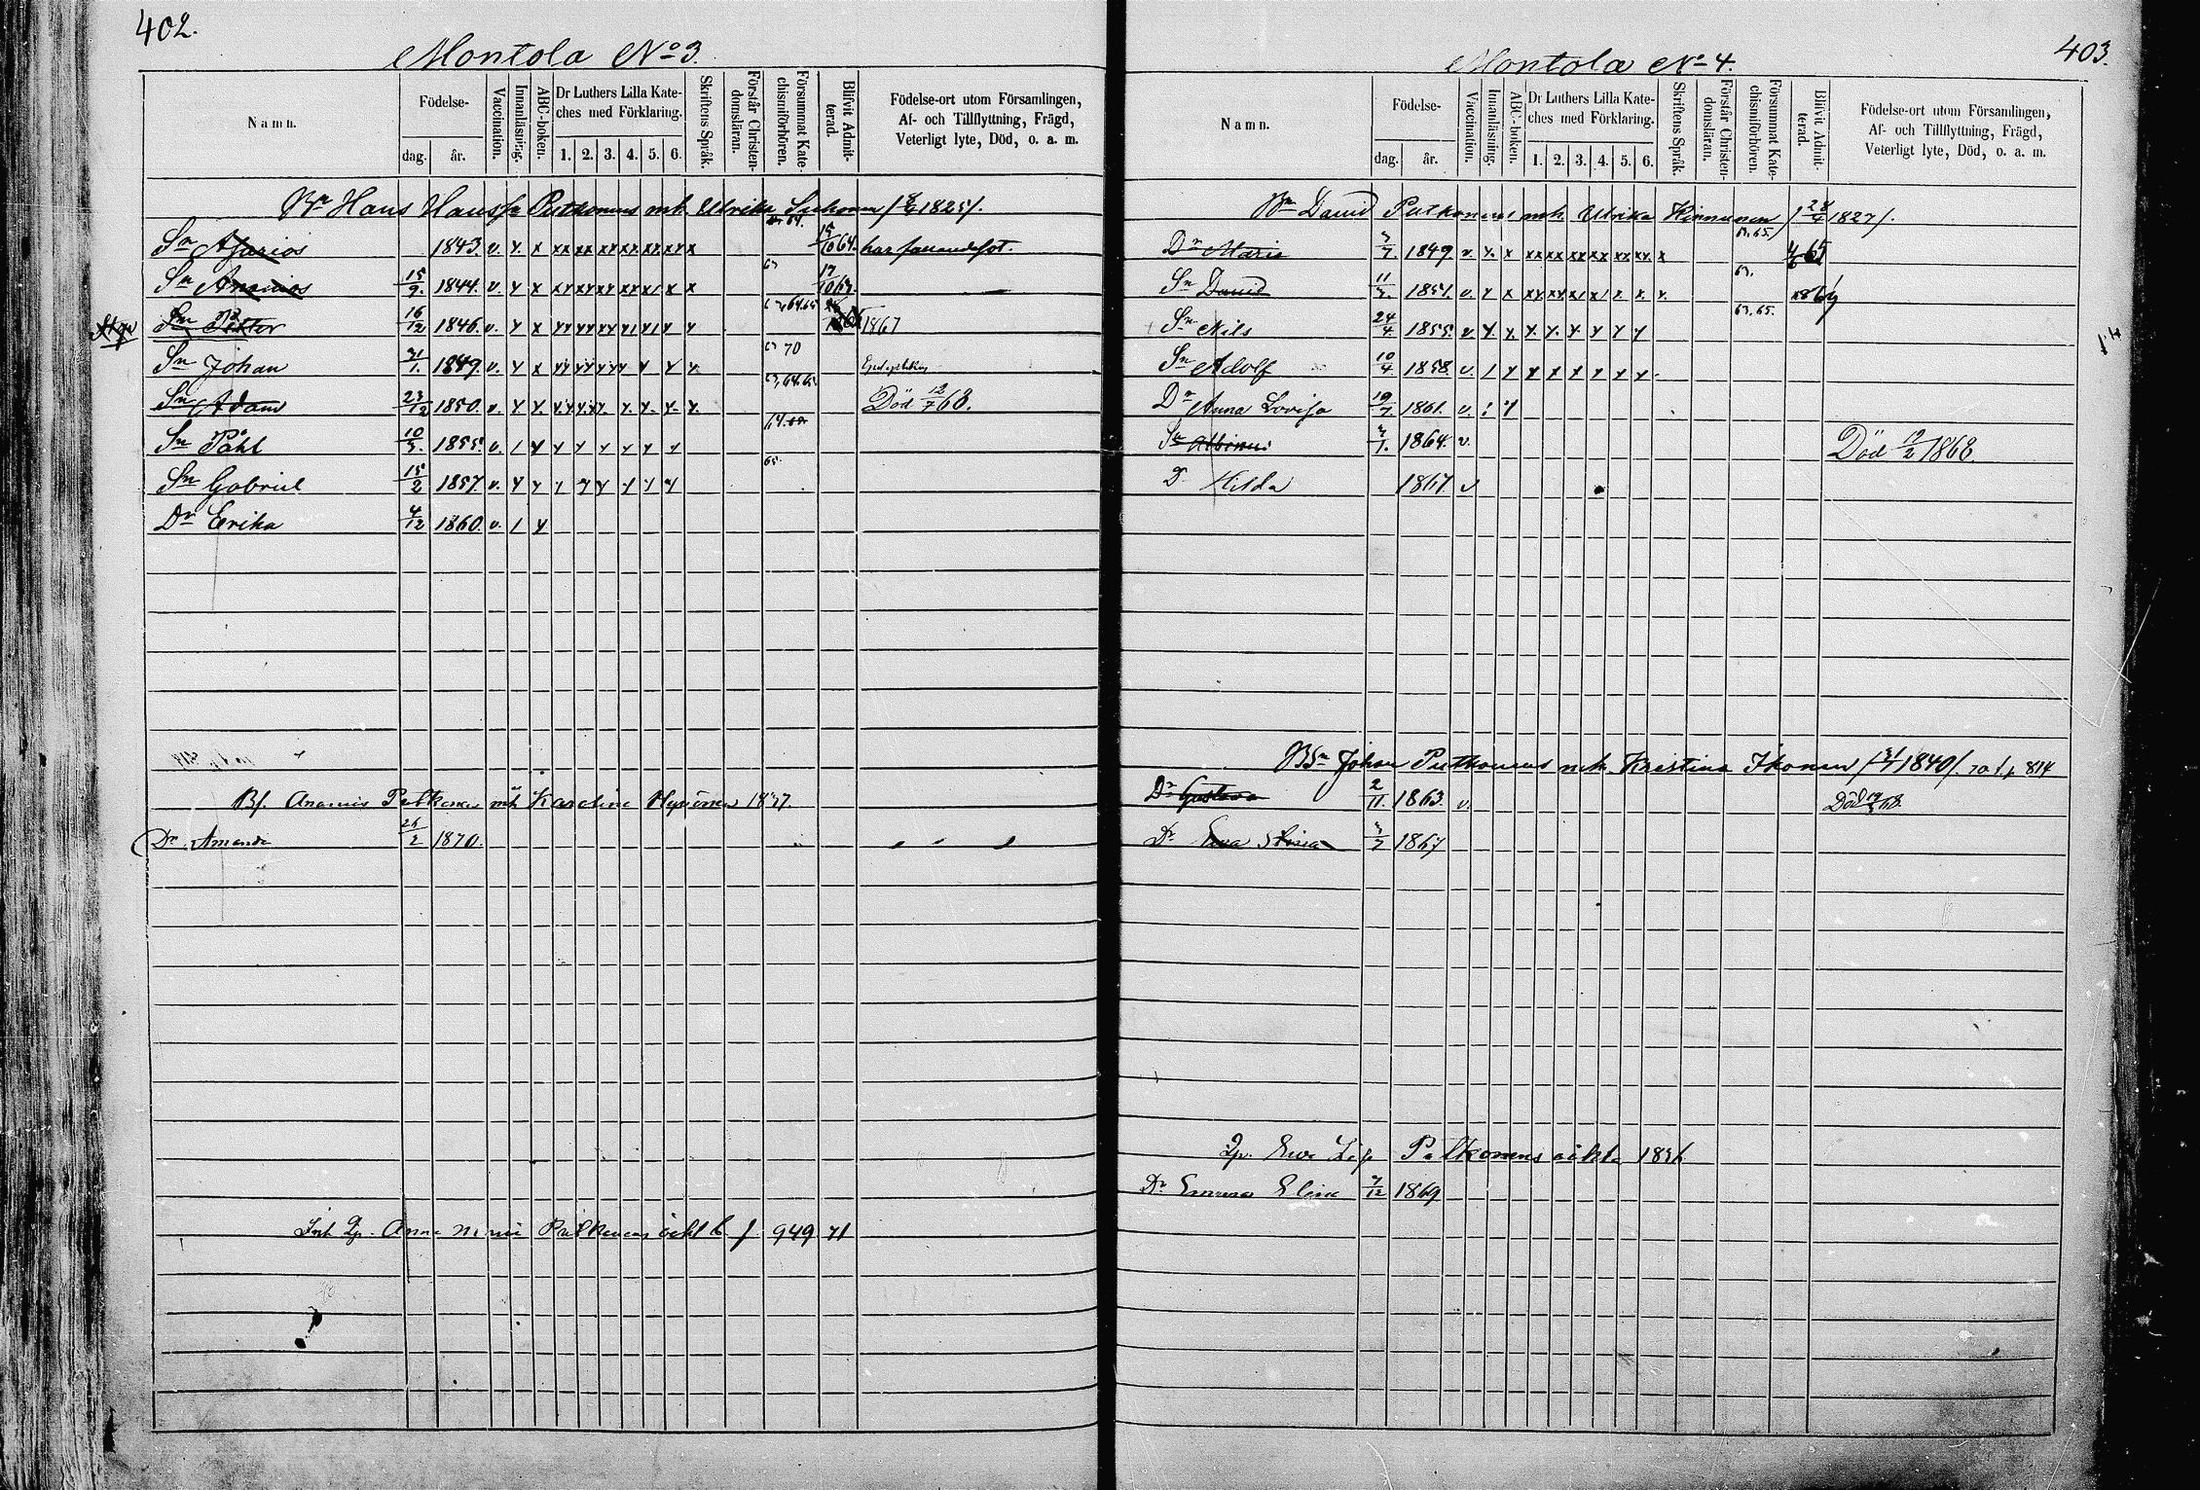 402.
Montola No 3.
Namn.
Födelse-
dag. år.
Vaccination.
Innanläsning.
ABC-boken.
Dr Luthers Lilla Kate-
ches med Förklaring.
1. 2. 3. 4. 5. 6.
Skriftens Språk.
Förstår Christen-
domsläran.
Försummat Kate-
chismiförhören.
Blifvit Admit-
terad.
Födelse-ort utom Församlingen,
Af- och Tillflyttning, Frägd,
Veterligt lyte, Död, o. a. m.
Bn Hans Hansson Putkonens mh. Ulrika 1825/.
64.
Sn Asarias 1843. v. x. x xx xx xx xx xx xx x 15/10 64. har fallandesot.
Sn Ananias 15/9. 1844. v. x x xx xx xx xx x/ xx x 63 17/10 63.
Sn Petter 16/12 1846. v. x x 63,64.65 1867
Sn Johan 31/1. 1849. v. x x 63 70
Sn Adam 23/12 1850. v. x x. 63,64.65 Död 12/7 68.
Sn Påhl 10/3. 1855. v. / x x x x x x x 64.
Sn Gabriel 15/2 1857. v. x x / x x x x x 65.
Dr Erika 4/12 1860. v. / x
Bs. Ananias Putkonen mh Karolina 1837.
Dr. Amanda 26/2 1870.
Inh Qp. Anna Putkonens äkt b f. 949 71
403.
Montola No 4.
Namn.
Födelse-
dag. år.
Vaccination.
Innanläsning.
ABC-boken.
Dr Luthers Lilla Kate-
ches med Förklaring.
1. 2. 3. 4. 5. 6.
Skriftens Språk.
Förstår Christen-
domsläran.
Försummat Kate-
chismiförhören.
Blifvit Admit-
terad.
Födelse-ort utom Församlingen,
Af- och Tillflyttning, Frägd,
Veterligt lyte, Död, o. a. m.
Bn David Putkonens mh. Ulrika Kinnunen /28/4 1827/.
Dr Maria 3/7. 1849. v. x. x xx xx xx xx xx xx. x 63.65. 65
Sn David 11/3. 1851. v. x x xx xx. x/ x/ x. x. x. 63. 69
Sn Nils 24/4. 1855. v x x. x. x. x x x x 63.65.
Sn Adolf 10/4 1858. v. / x x x x x x x.
Dr Anna Lovisa 19/7. 1861. v.
Sn Albinus 3/1. 1864. v. Död 1868.
D. Hilda 1867. v
Bsn Johan Putkonens mh. Kristina Ikonen 1840/. 814
Dr Gustava 2/11 1863. v. Död 68.
Dr. Eva 3/7 1867
Qp. Eva Lisa Putkonens äkta 1836
Dr. Emma Elina 7/12 1869